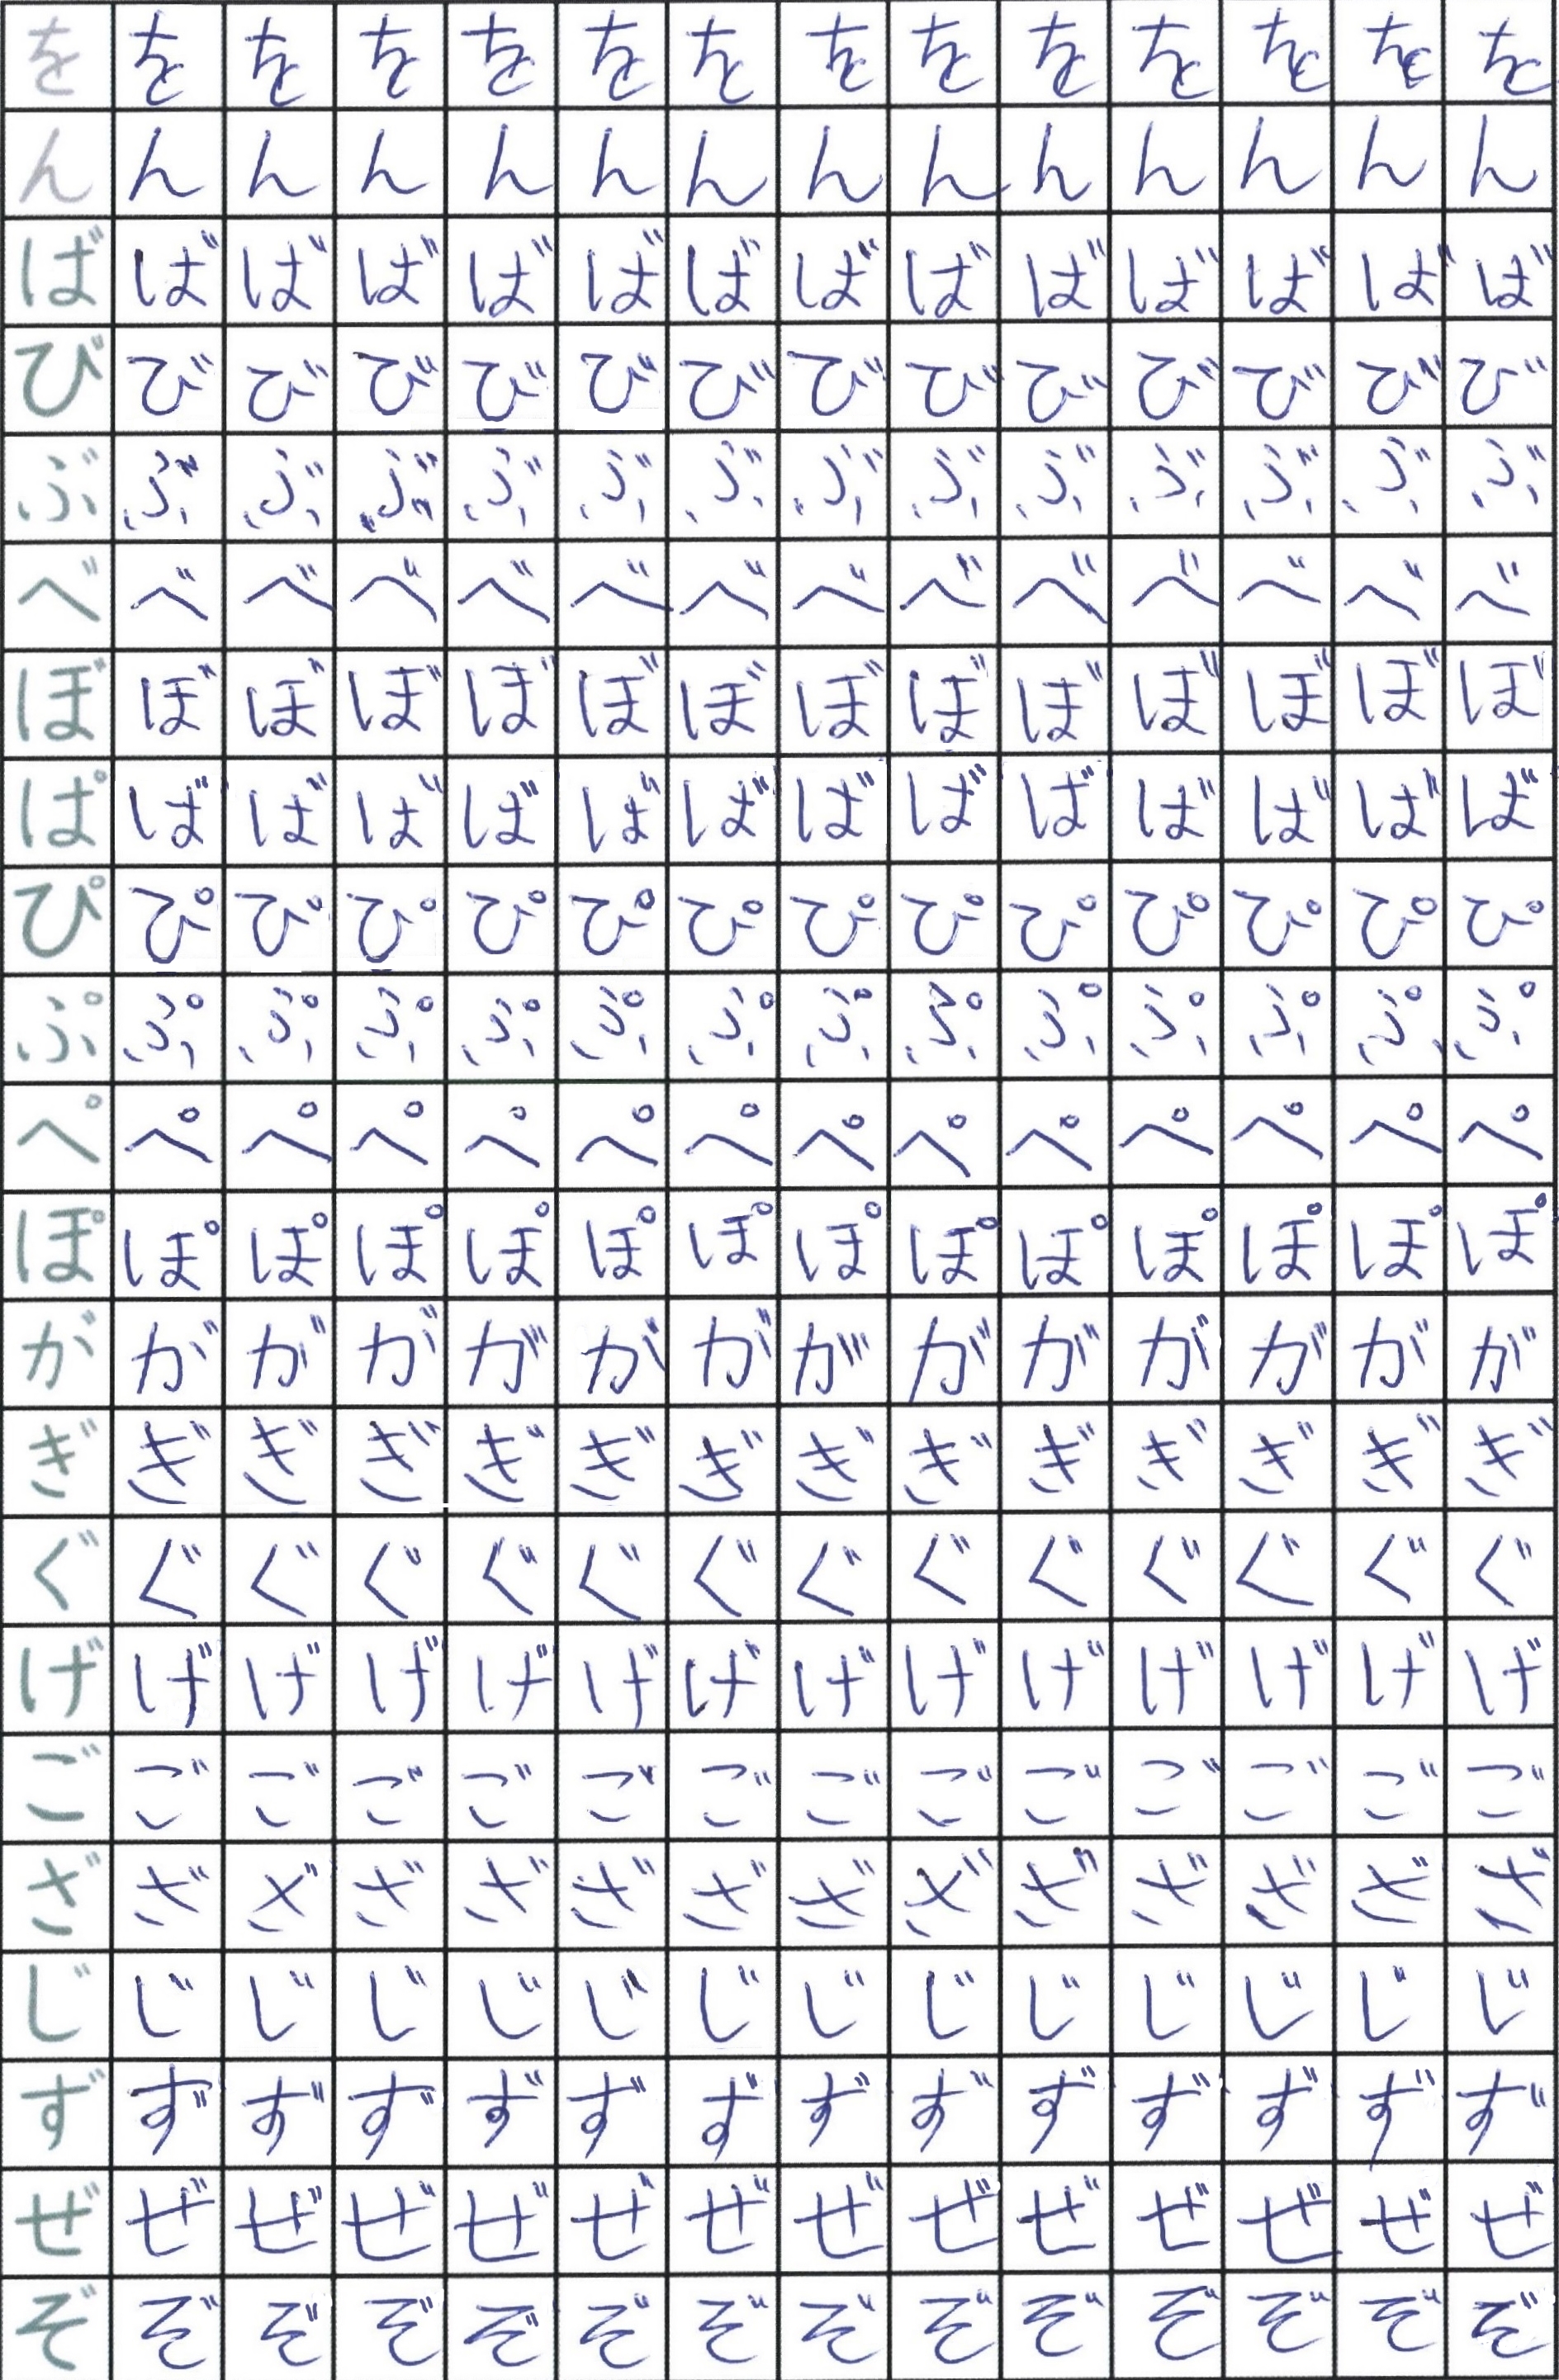 を を を を を を を を を を を を を を
ん ん ん ん ん ん ん ん ん ん ん ん ん ん
ば ば ば ば ば ば ば ば ば ば ば ば ば ば
び び び び び び び び び び び び び び
ぶ ぶ ぶ ぶ ぶ ぶ ぶ ぶ ぶ ぶ ぶ ぶ ぶ ぶ
べ べ べ べ べ べ べ べ べ べ べ べ べ べ
ぼ ぼ ぼ ぼ ぼ ぼ ぼ ぼ ぼ ぼ ぼ ぼ ぼ ぼ
ぱ ば ば ば ば ば ば ば ば ば ば ば ば ば
ぴ ぴ ぴ ぴ ぴ ぴ ぴ ぴ ぴ ぴ ぴ ぴ ぴ ぴ
ぷ ぷ ぷ ぷ ぷ ぷ ぷ ぷ ぷ ぷ ぷ ぷ ぷ ぷ
ぺ ぺ ぺ ぺ ぺ ぺ ぺ ぺ ぺ ぺ ぺ ぺ ぺ ぺ
ぽ ぽ ぽ ぽ ぽ ぽ ぽ ぽ ぽ ぽ ぽ ぽ ぽ ぽ
が が が が が が が が が が が が が が
ぎ ぎ ぎ ぎ ぎ ぎ ぎ ぎ ぎ ぎ ぎ ぎ ぎ ぎ
ぐ ぐ ぐ ぐ ぐ ぐ ぐ ぐ ぐ ぐ ぐ ぐ ぐ ぐ
げ げ げ げ げ げ げ げ げ げ げ げ げ げ
ご ご ご ご ご ご ご ご ご ご ご ご ご ご
ざ ざ ざ ざ ざ ざ ざ ざ ざ ざ ざ ざ ざ ざ
じ じ じ じ じ じ じ じ じ じ じ じ じ じ
ず ず ず ず ず ず ず ず ず ず ず ず ず ず
ぜ ぜ ぜ ぜ ぜ ぜ ぜ ぜ ぜ ぜ ぜ ぜ ぜ ぜ
ぞ ぞ ぞ ぞ ぞ ぞ ぞ ぞ ぞ ぞ ぞ ぞ ぞ ぞ